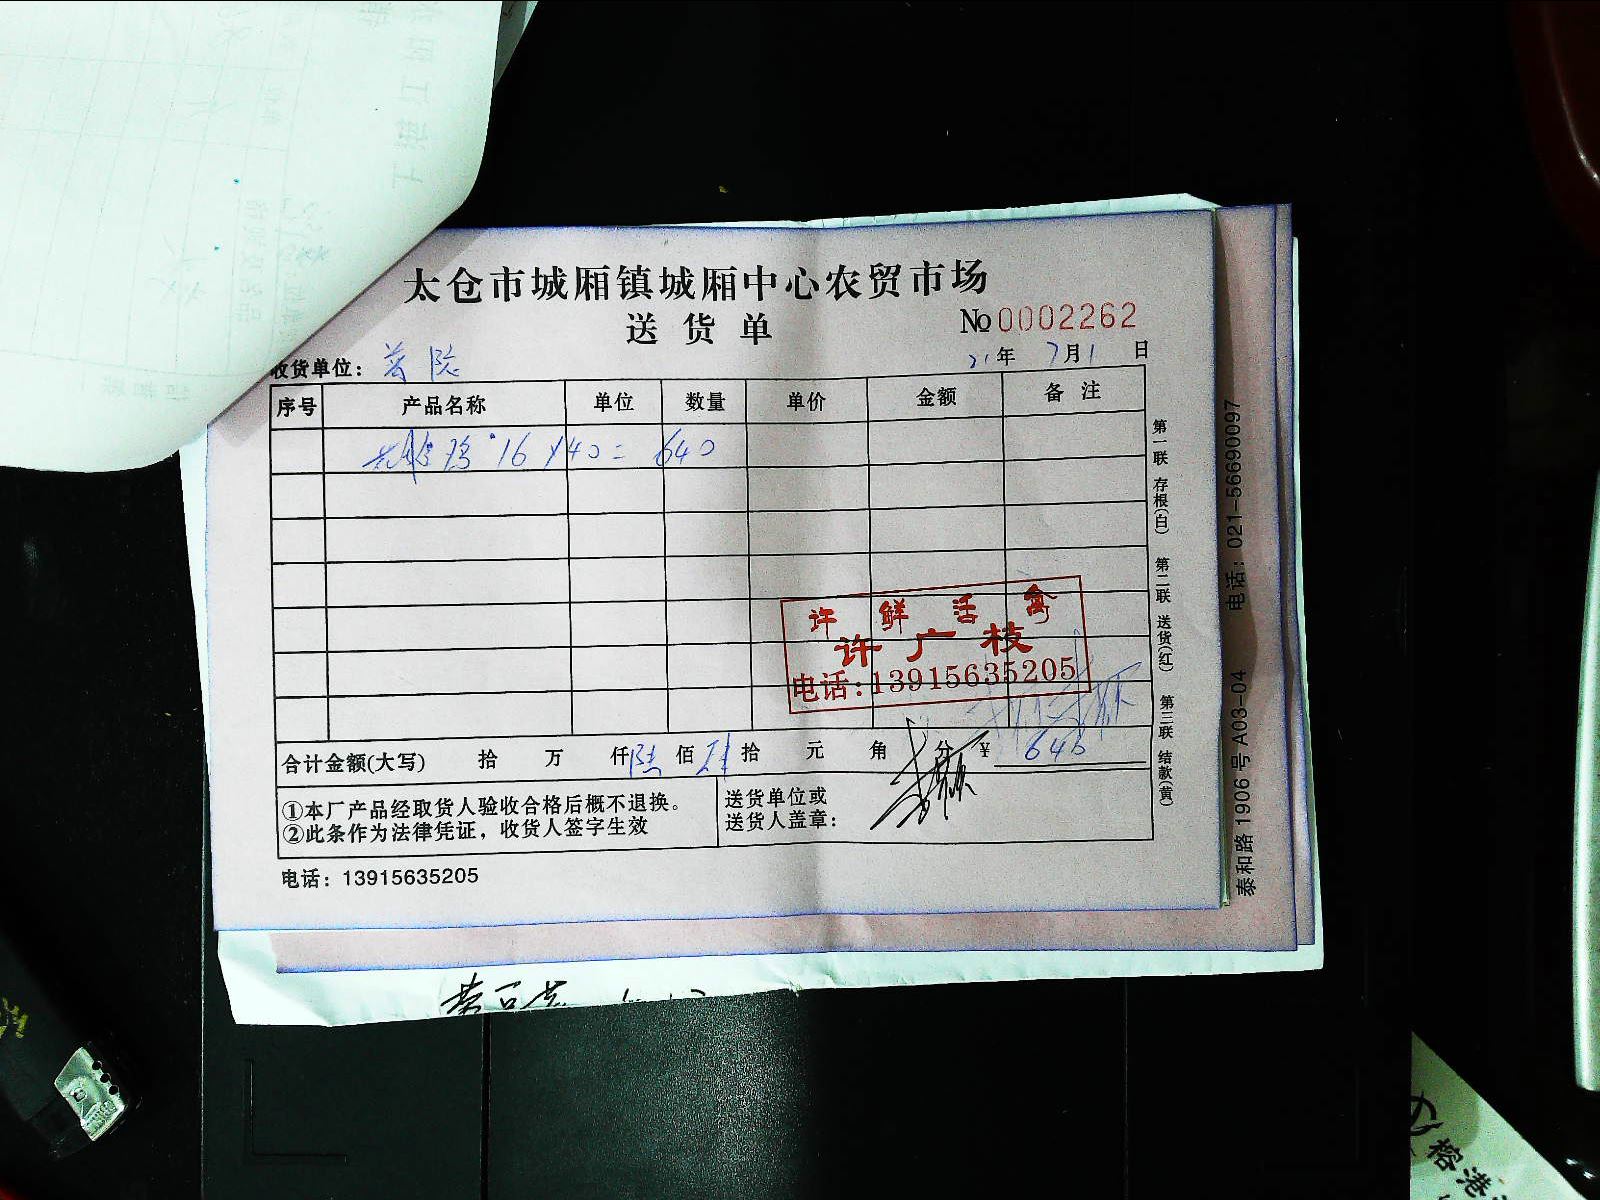 太仓市城厢镇城厢中心农贸市场
送货单
№0002262
收货单位：
21年 7月1 日
序号 产品名称 单位 数量 单价 金额 备注
鸡 16×40=640
许 鲜 活 禽
许广枝
电话:13915635205
合计金额(大写) 拾 万 仟陆佰肆拾 元 角 分 ¥ 640
①本厂产品经取货人验收合格后概不退换。
②此条作为法律凭证，收货人签字生效
送货单位或
送货人盖章：
电话：13915635205
第一联 存根(白) 第二联 送货(红) 第三联 结款(黄)
泰和路1906号A03-04 电话：021-56690097
榕港